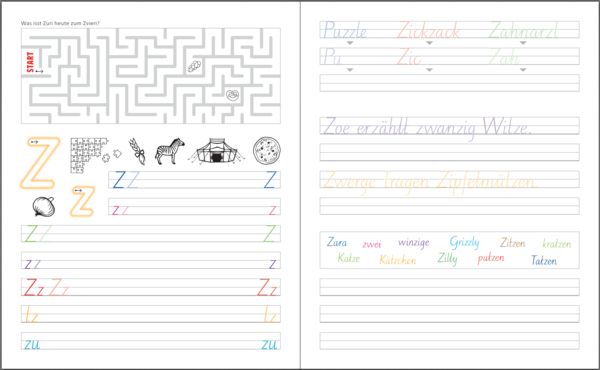 Was isst Zuri heute zum Zvieri?
START
Z
z
Z Z Z
z z z
Z Z Z
z z z
Zz Zz Zz
tz tz
zu zu
Puzzle Zickzack Zahnarzt
Pu Zic Zah
Zoe erzählt zwanzig Witze.
Zwerge tragen Zipfelmützen.
Zara zwei winzige Grizzly Zitzen kratzen
Katze Kätzchen Zilly putzen Tatzen